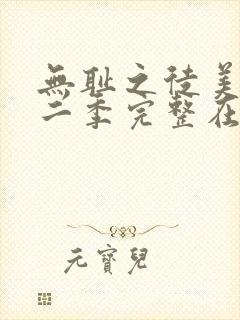 無耻之徒美
二季完整在
元寶兒